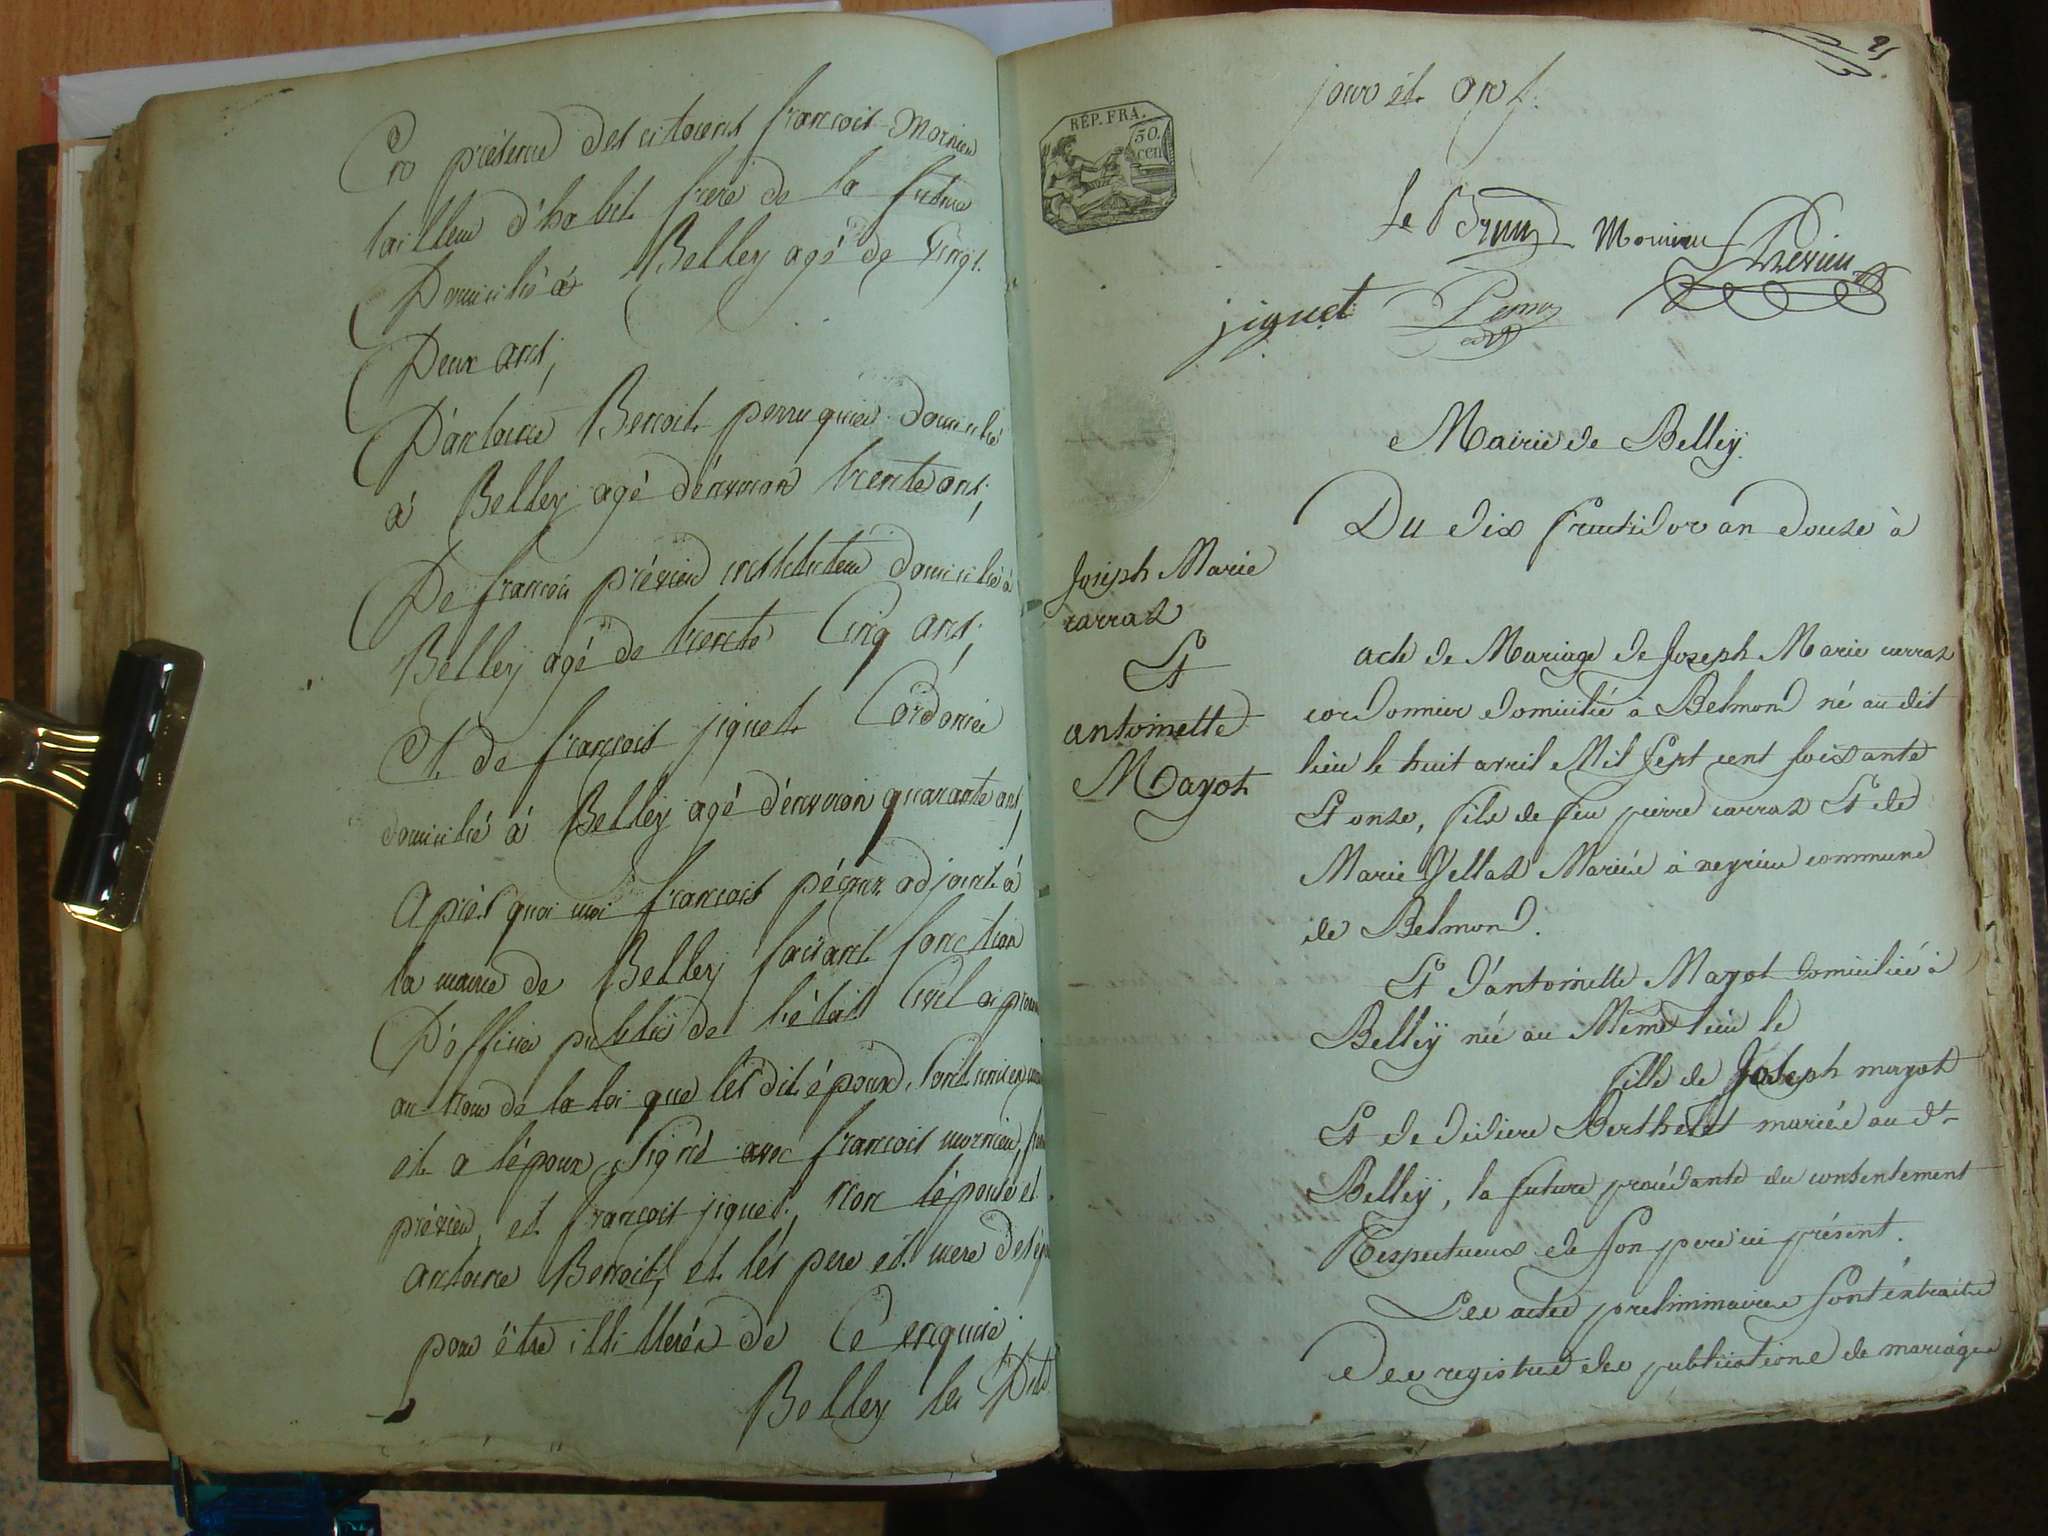 En présence des citoiens françois mornieu
tailleur d'habit frere de la future
Domicilié à Belley agé de Vingt
Deux ans,
D'antoine Benoit perruquier domicilié
à Belley agé d'environ trente ans,
De françois prévieu instituteur domicilié à
Belley agé de trente Cinq ans,
Et de françois jiguet Cordonier
domicilié à Belley agé d'environ quarante ans,
Après quoi moi françois adjoint à
la mairie de Belley faisant fonction
D'officier public de l'état Civil ai
au nom de la loi que les dits époux sont unis en
et a l'époux signé avec françois mornieu,
prévieu, et françois jiguet, non l'épouse et
antoine Benoit, et les pere et mere
pour être illitterés de Ce enquis
Belley les Dits
21
jour et an
RÉP. FRA.
50.
cen
Le Brun Mornieu Prévieu
jiguet
Mairie de Belleÿ
Du dix fructidor an douze à
Joseph Marie
carraz
Et
antoinette
Mayot
acte de Mariage de Joseph Marie carraz
cordonnier domicilié à Belmond né au dit
lieu le huit avril Mil Sept cent soixante
Et onze, fils de feu pierre carraz Et de
Marie Vellaz Mariés à neyrieu commune
de Belmond.
Et d'antoinette Mayot domiciliée à
Belleÿ née au Même lieu le
fille de Joseph mayot
Et de didiere Berthelet mariés au dt
Belleÿ, la future procédante du consentement
Respectueux de son pere ici présent.
Les actes preliminaires sont extraits
des registres des publications de mariages